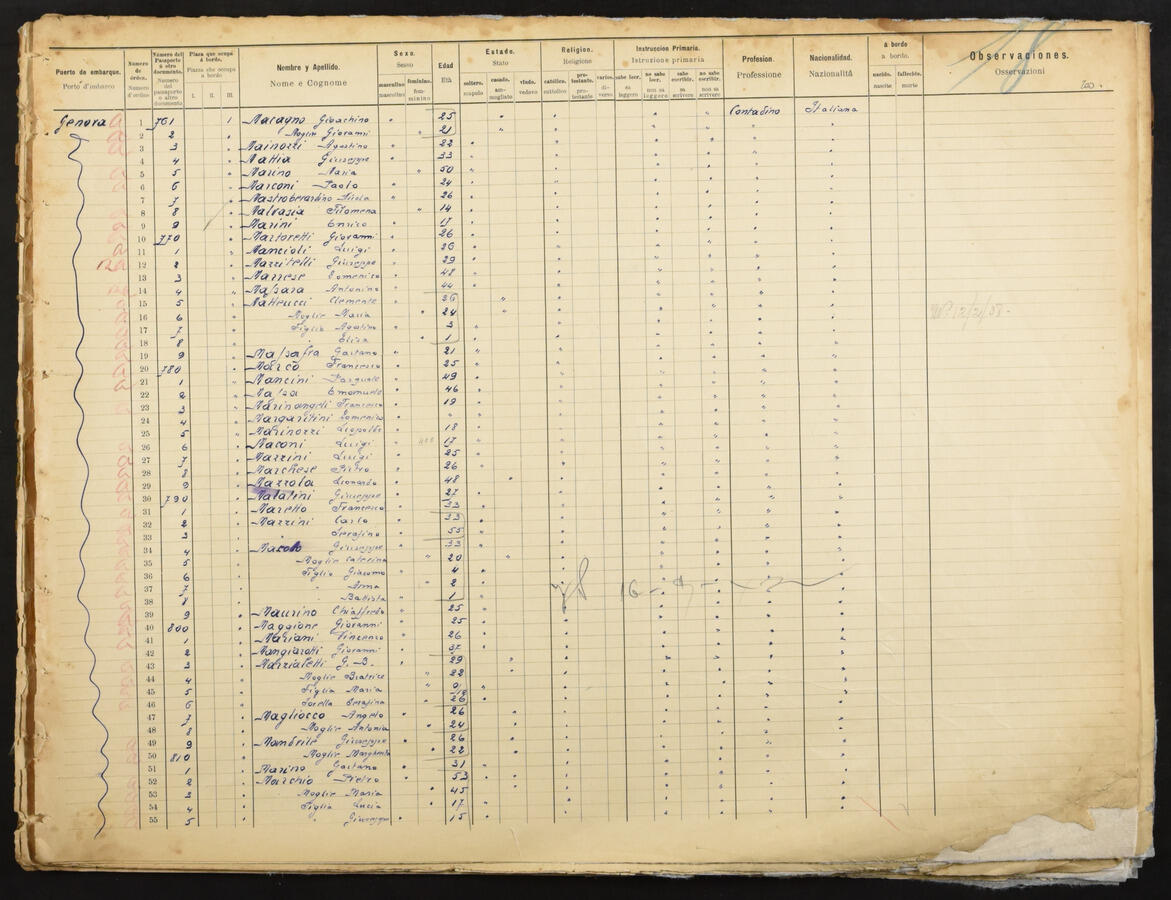 Puerto de embarque. Porto d'imbarco Número de órden. Numero d'ordine Número del Pasaporte ú otro documento. Numero del passaporto o altro documento Plaza que ocupá á bordo. Piazza che occupa a bordo I. II. III. Nombre y Apellido. Nome e Cognome Sexo. Sesso masculino maschino feminino. femminino Edad Età Estado. Stato soltero. scapolo casado. ammogliato viudo. vedovo Religion. Religione católico. cattolico protestante. protestante varios. diverso Instruccion Primaria. Istruzione primaria sabe leer. sa leggere no sabe leer. non sa leggere sabe escribir. sa scrivere no sabe escribir. non sa scrivere Profesion. Professione Nacionalidad. Nazionalitá á bordo a bordo. nacido. nascite fallecido. morte Observaciones. Osservazioni
Genova 1 761 1 Macagno Gioachino " 25 Contadino Italiana
2 2 Moglie Giovanni 21
3 3 Mainozzi Agostino 22
4 4 Mattia Giuseppe 33
5 5 Marino Maria 50
6 6 Marconi Paolo 24
7 7 Mastroberardino Nicola 26
8 8 Malvasia Filomena 14
9 9 Marini Enrico 17
10 770 Martoretti Giovanni 26
11 1 Mancioli Luigi 26
12 2 Mazzitelli Giuseppe 29
13 3 Marrese Domenico 48
14 4 Massara Antonino 44
15 5 Matteucci Clemente 36
16 6 Moglie Maria 24
17 7 Figlio Agostino 3
18 8 " Elisa 1
19 9 Massafra Gaetano 21
20 780 Marco Francesco 25
21 1 Mancini Pasquale 49
22 2 Massa Emanuele 46
23 3 Marinangeli Francesco 19
24 4 Margaritini Domenico "
25 5 Marinozzi Leopoldo 18
26 6 Maconi Luigi 17
27 7 Mazzini Luigi 25
28 8 Marchese Pietro 26
29 9 Mazzola Leonardo 48
30 790 Natalini Giuseppe 27
31 1 Maretto Francesco 33
32 2 Mazzini Carlo 33
33 3 " Serafino 55
34 4 Giuseppe 33
35 5 Moglie Caterina 20
36 6 Figlio Giacomo 4
37 7 " Anna 2
38 8 " Battista 1
39 9 Maurino Chiaffredo 25
40 800 Maggione Giovanni 25
41 1 Mariani Vincenzo 26
42 2 Mangiarotti Giovanni 37
43 3 Marziatetti G. B. 29
44 4 Moglie Beatrice 22
45 5 Figlia Maria 0
46 6 Sorella Serafina 26
47 7 Magliocco Angelo 26
48 8 Moglie Antonia 24
49 9 Mambrile Giuseppe 26
50 810 Moglie Margherita 22
51 1 Marino Gaetano 31
52 2 Marchio Pietro 53
53 2 Moglie Maria 45
54 4 Figlia Lucia 17
55 5 " Giuseppe 15